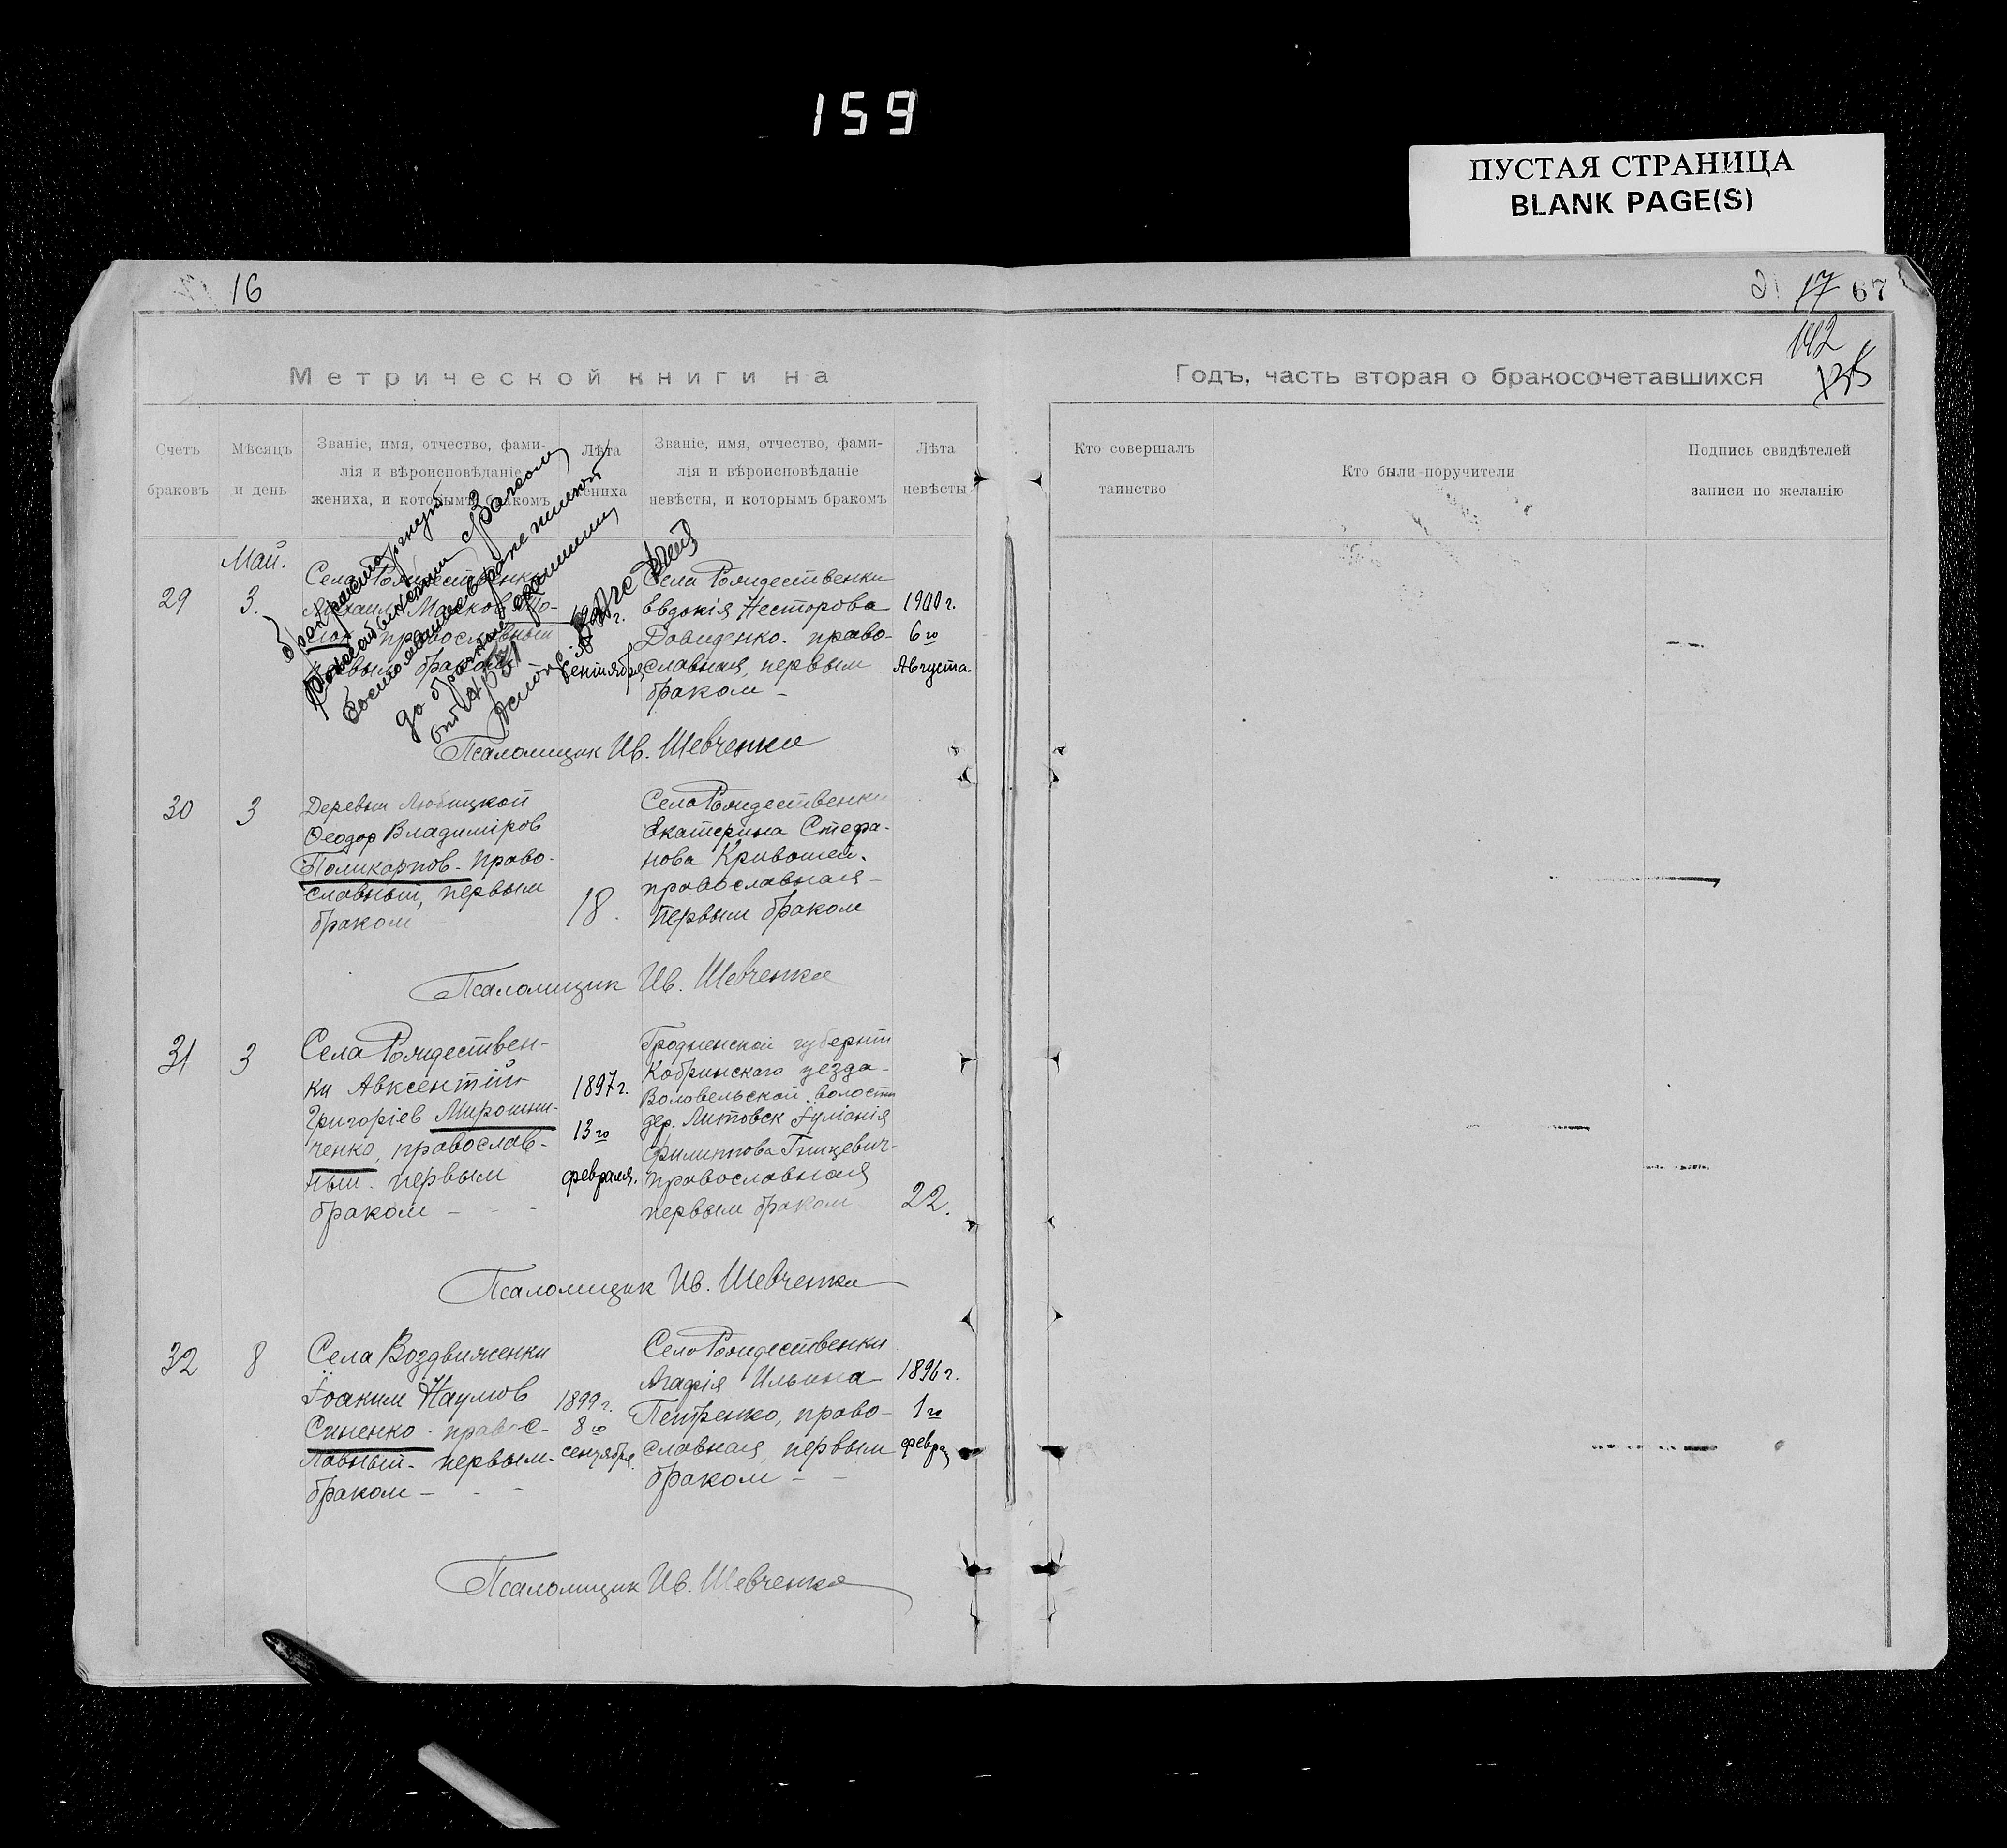 159
ПУСТАЯ СТРАНИЦА
BLANK PAGE(S)
16
17 67
142
Метрической книги на
Годъ, часть вторая о бракосочетавшихся
Счетъ браковъ
Мѣсяцъ и день
Званіе, имя, отчество, фами-
лія и вѣроисповѣданіе
жениха, и которымъ бракомъ
Лѣта
жениха
Званіе, имя, отчество, фами-
лія и вѣроисповѣданіе
невѣсты, и которымъ бракомъ
Лѣта
невѣсты
Кто совершалъ
таинство
Кто были поручители
Подпись свидѣтелей
записи по желанію
Май.
29
3.
Села Рождественки
Михаил
православный
первым браком
сентября
Села Рождественки
Евдокія Несторова
Давиденко. право-
славная, первым
браком -
1900 г.
6го
Августа
брак расторгнут
Псаломщик Ив. Шевченко
30
3
Деревни Любицкой
Ѳеодор Владиміров
Поликарпов - право-
славный, первым
браком
18.
Села Рождественки
Екатерина Стефа-
нова Кривошей.
православная -
первым браком
Псаломщик Ив. Шевченко
31
3
Села Рождествен-
ки Авксентій
Григоріев Мирошни-
ченко, православ-
ный. первым
браком - - -
1897 г.
13го
февраля.
Гродненской губерніи
Кобринскаго уезда -
волости
дер. Литовск Іуліанія
Филиппова
православная
первым браком
22.
Псаломщик Ив. Шевченко
32
8
Села Воздвиженки
Іоаким Наумов
Синенко - правос-
лавный - первым -
браком - - -
1899 г.
8го
сентября.
Села Рождественки
Агафія Ильина
Петренко, право-
славная, первым
браком - -
1896 г.
1го
февра
Псаломщик Ив. Шевченко